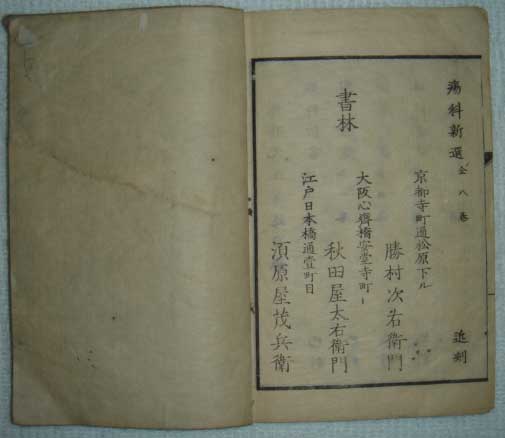 瘍科新選 全八卷 近刻
京都寺町通松原下ル
勝村次右衛門
大阪心齋橋安堂寺町
秋田屋太右衛門
書林
江戸日本橋通壹町目
須原屋茂兵衛